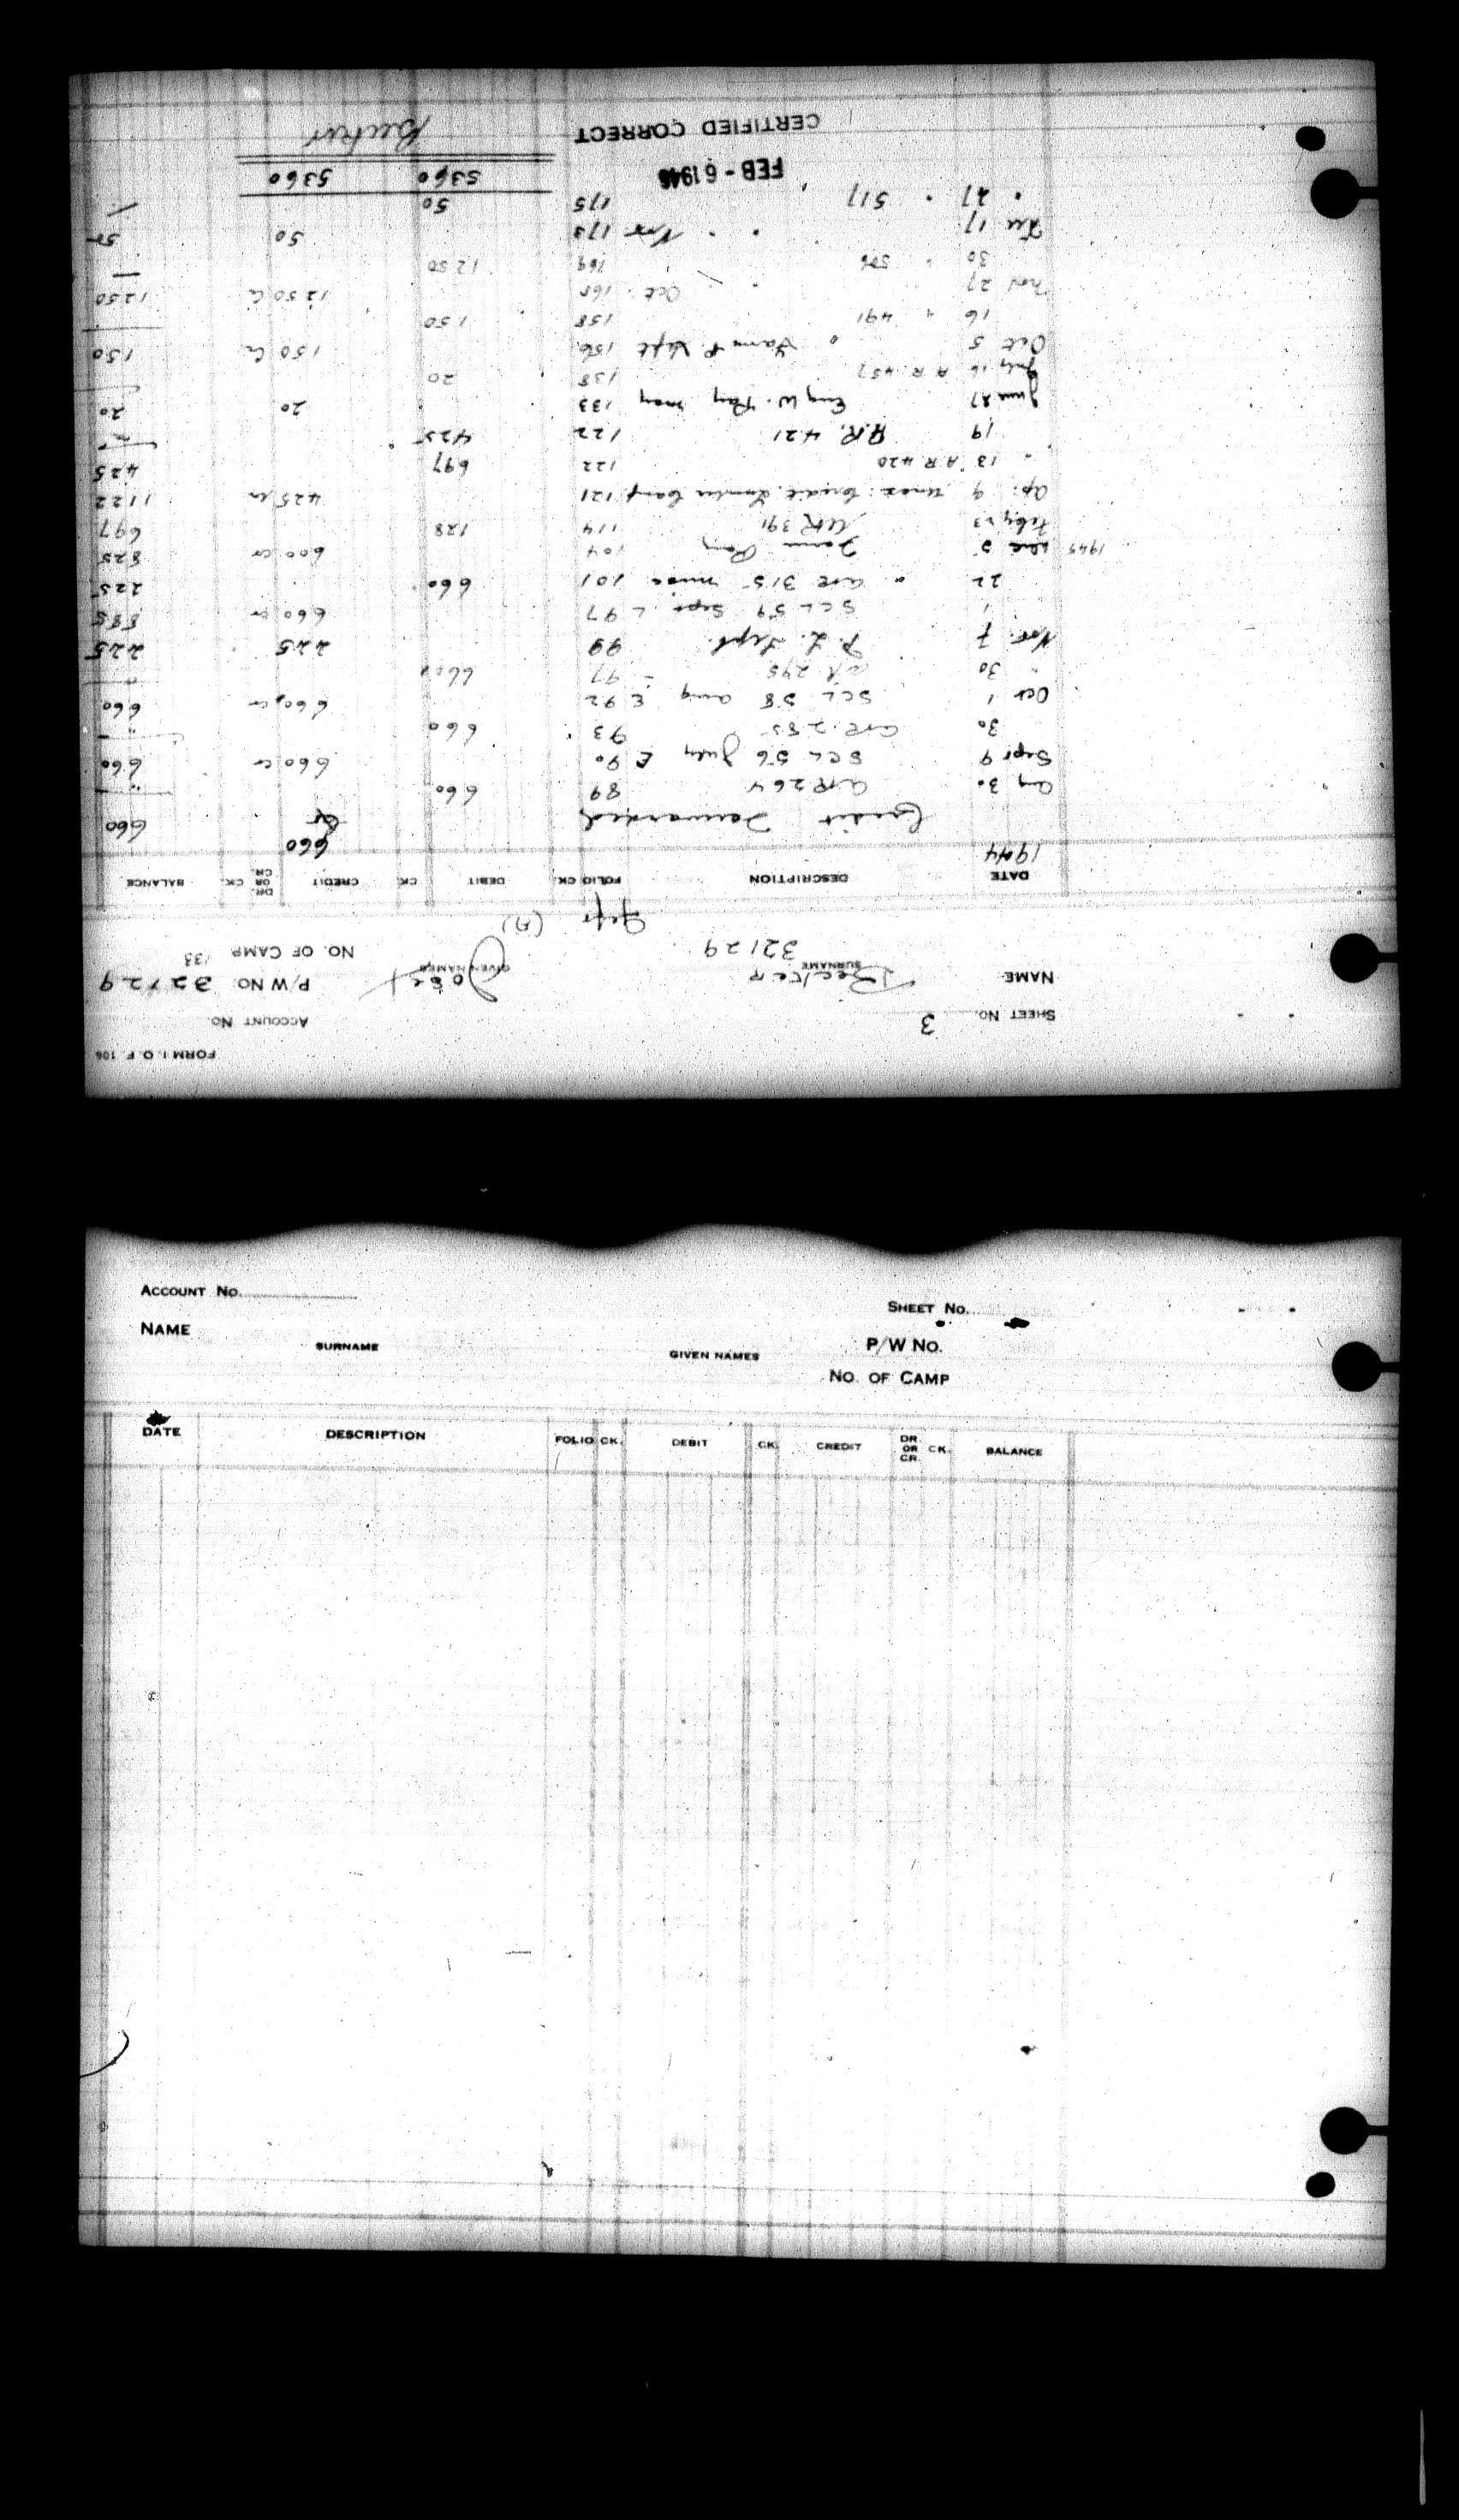 FORM I. O. F. 106
SHEET NO. 3 ACCOUNT NO.
NAME Becker Josef P/W NO. 32129
SURNAME GIVEN NAMES
32129 NO. OF CAMP 133
Gefr (A)
DATE DESCRIPTION FOLIO CK. DEBIT CK. CREDIT DR. OR CR. CK. BALANCE
1944
Credit Forwarded 660 Cr 660
Aug 30 AR 264 89 660
Sept 9 SCL 56 July E 90 660 cr 660
30 AR 285 93 660
Oct 1 SCL 58 Aug E 92 660 cr 660
" 30 AR 295 97 660
Nov. 7 P. L. Sept. 99 225 225
1 SCL 59 Sept L 97 660 cr 885
22 " AR 315 101 660 225
1945 Dec 5 Farm Pay 104 600 cr 825
Feby 23 AR 391 114 128 697
Ap. 9 Credit Lumber Camp 121 425 cr 1122
" 13 AR 420 122 697 425
19 A.R. 421 122 425
June 27 Eng W. Pay May 133 20 20
July 16 A R 457 138 20
Oct 5 " Farm P. Sept 156 150 Cr 150
16 " 491 158 150
Nov 27 " " Oct. 165 1250 Cr 1250
30 " 506 169 1250
Dec 17 " " Nov 173 50 50
" 27 " 517 175 50
FEB - 6 1946 5360 5360
CERTIFIED CORRECT Becker
ACCOUNT NO. SHEET NO.
NAME P/W NO.
SURNAME GIVEN NAMES
NO. OF CAMP
DATE DESCRIPTION FOLIO CK. DEBIT CK. CREDIT DR. OR CR. CK. BALANCE